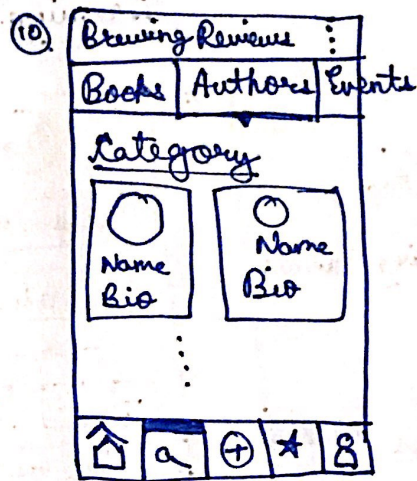 10.
Brewing Reviews
Books Authors Events
Category
Name Name
Bio Bio